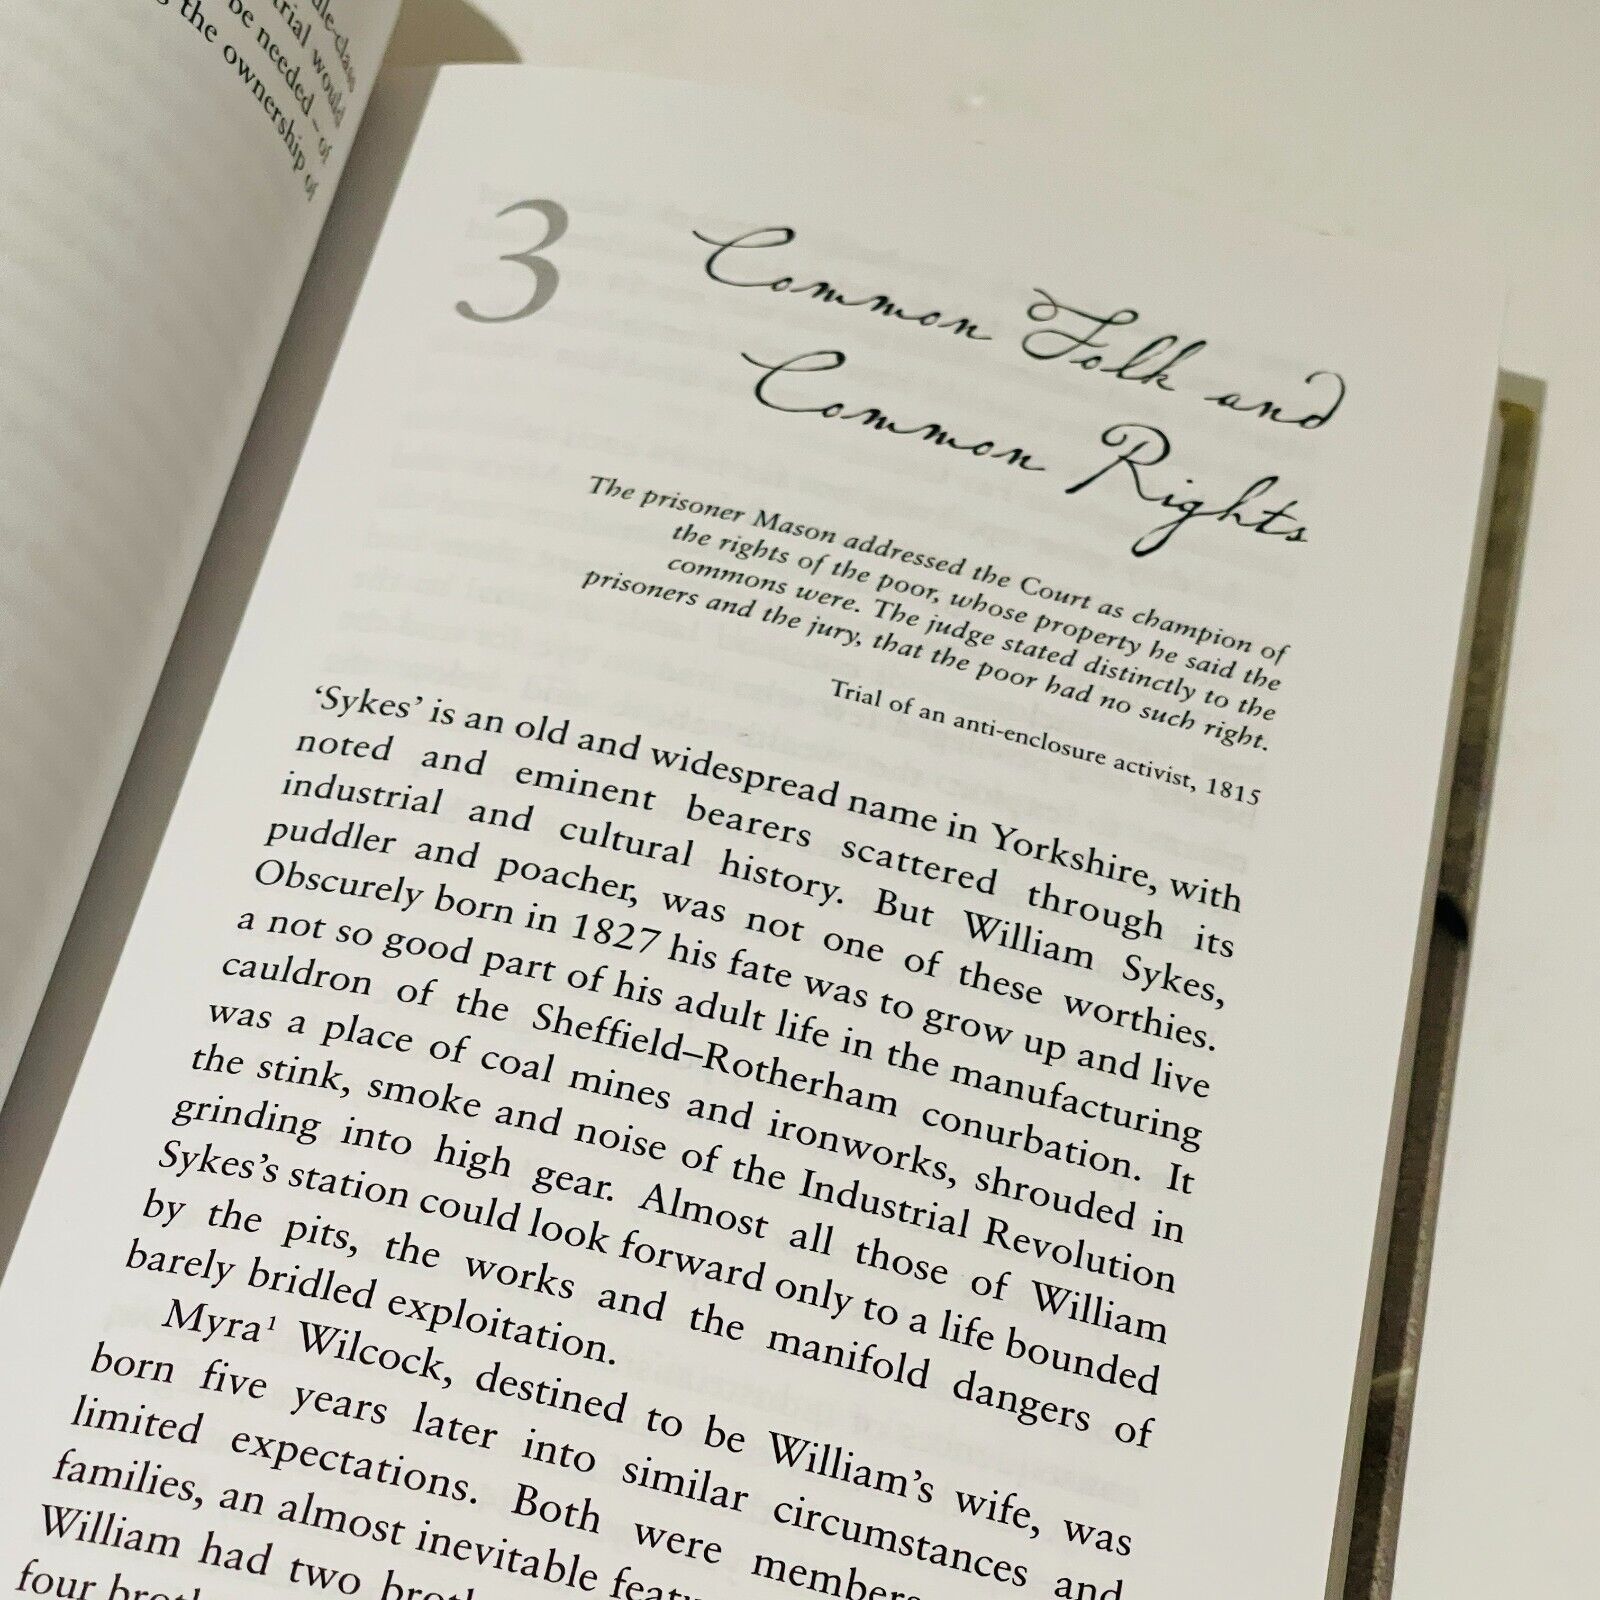 trial would
be needed – of
the ownership of
3
Common Folk and
Common Rights
The prisoner Mason addressed the Court as champion of
the rights of the poor, whose property he said the
commons were. The judge stated distinctly to the
prisoners and the jury, that the poor had no such right.
Trial of an anti-enclosure activist, 1815
‘Sykes’ is an old and widespread name in Yorkshire, with
noted and eminent bearers scattered through its
industrial and cultural history. But William Sykes,
puddler and poacher, was not one of these worthies.
Obscurely born in 1827 his fate was to grow up and live
a not so good part of his adult life in the manufacturing
cauldron of the Sheffield–Rotherham conurbation. It
was a place of coal mines and ironworks, shrouded in
the stink, smoke and noise of the Industrial Revolution
grinding into high gear. Almost all those of William
Sykes’s station could look forward only to a life bounded
by the pits, the works and the manifold dangers of
barely bridled exploitation.
Myra¹ Wilcock, destined to be William’s wife, was
born five years later into similar circumstances and
limited expectations. Both were members
families, an almost inevitable
William had two
four